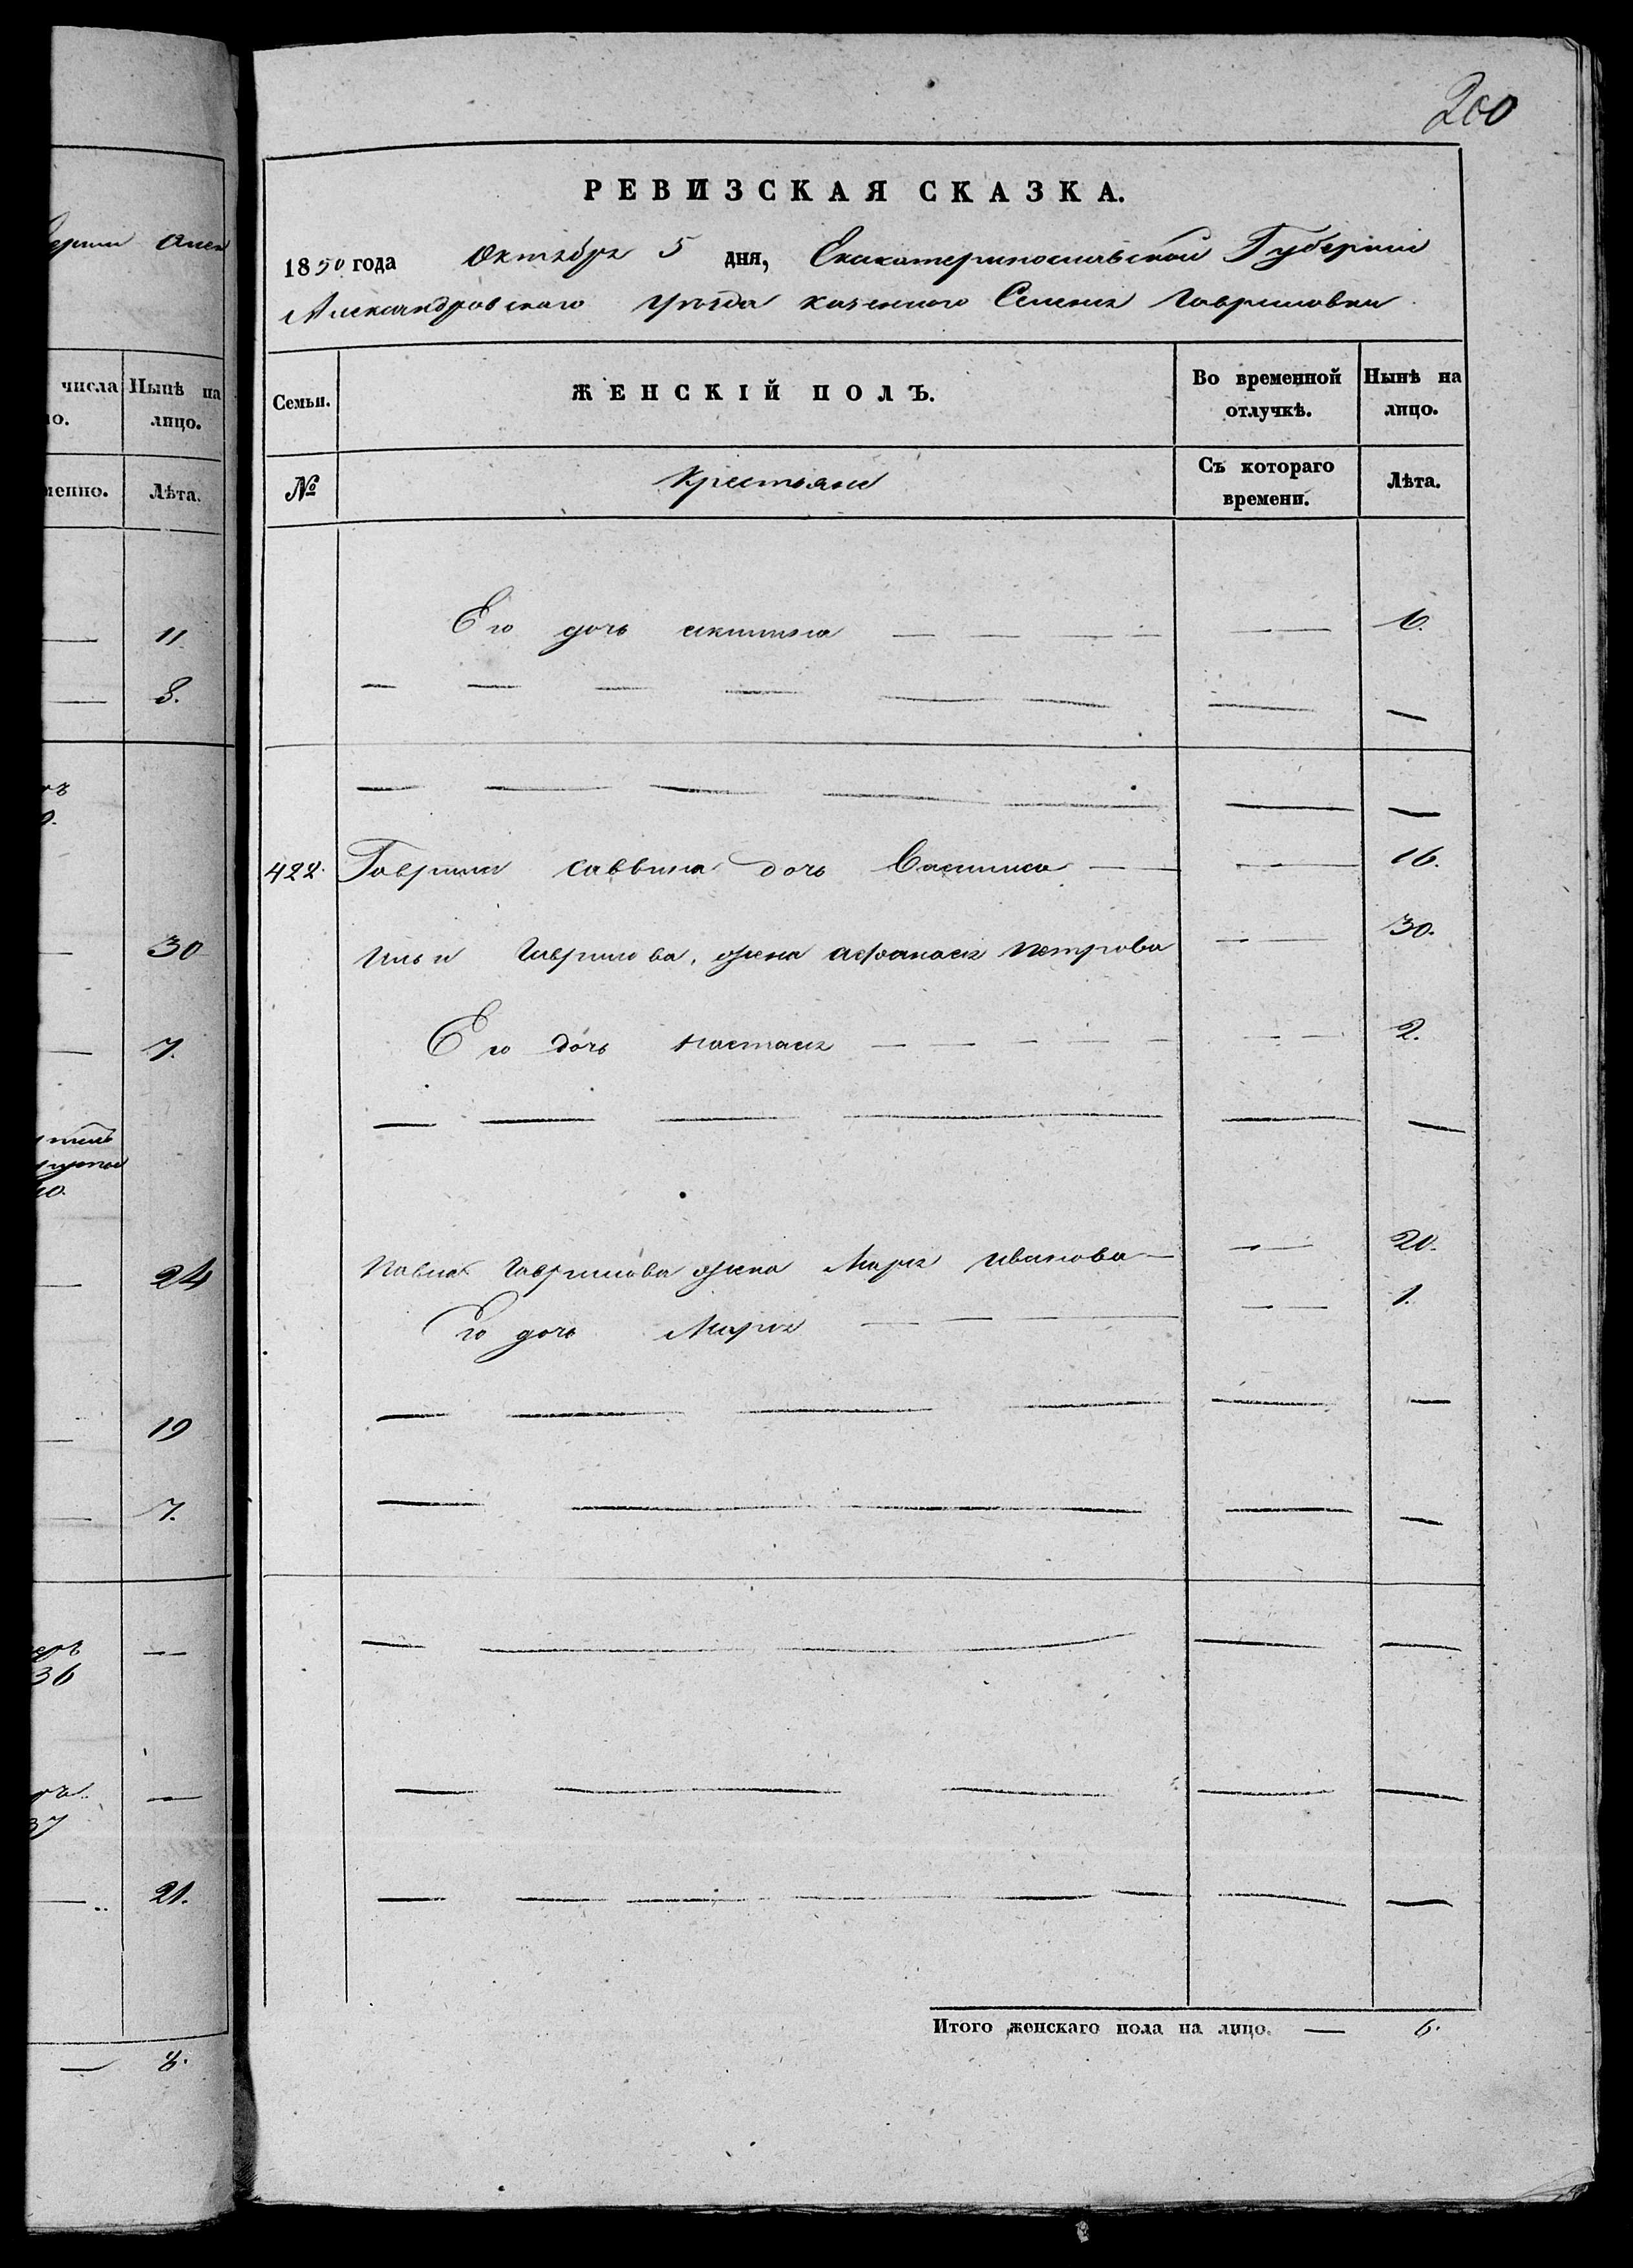 200
РЕВИЗСКАЯ СКАЗКА.
1850 года Октября 5 дня, Екатеринославской Губернии
Александровского уезда казенного Селения Гавриловки
числа Нынѣ на
лицо.
Лѣта.
11
8.
30
7.
24
19
7.
36
37
21.
8.
Семьи. ЖЕНСКІЙ ПОЛЪ. Во временной отлучкѣ. Нынѣ на лицо.
№ Крестьяне Съ котораго времени. Лѣта.
Его дочь 6.
422. Гаврили Саввина дочь Василиса 16.
Ильи Гаврилова, жена Афанасия Петрова 30.
Его дочь Настасия 2.
Павла Гаврилова жена Мария Иванова 20.
Его дочь Мария 1.
Итого женскаго пола на лицо. — 6.